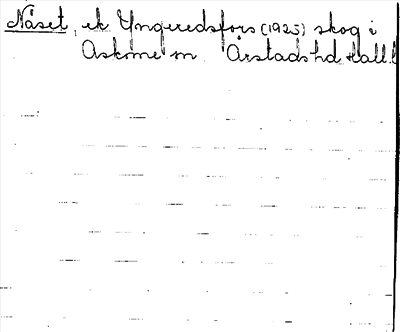 Näset, ek Yngeredsfors (1925) skog i
Askome sn Årstads hd Hall. l